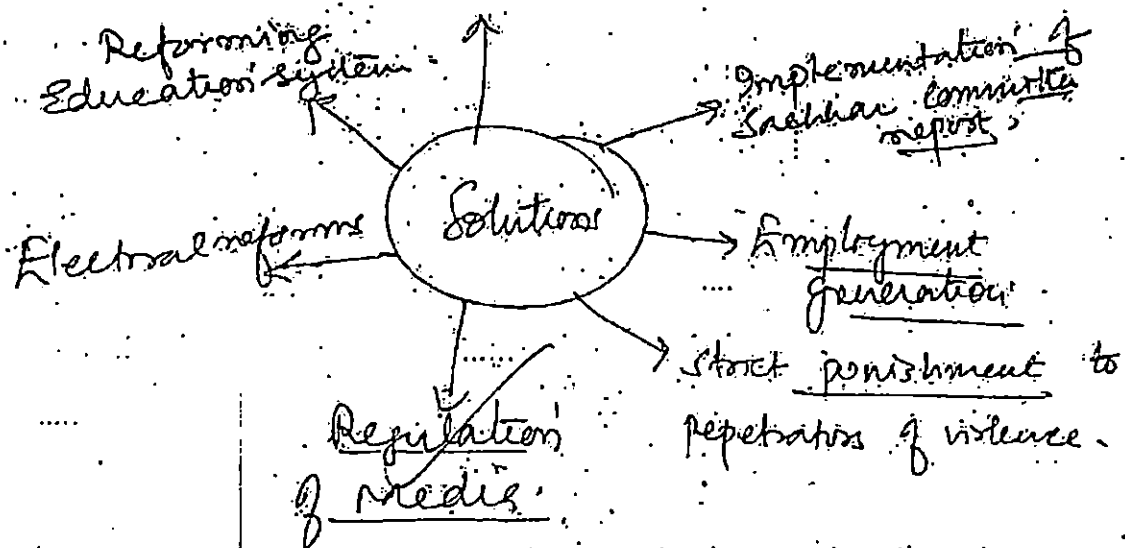 Reforming
Education system
Implementation of
Sachhar committee
report.
Solutions
Electoral reforms
Employment
generation.
Strict punishment to
pepetrators of violence.
Regulation
of media.